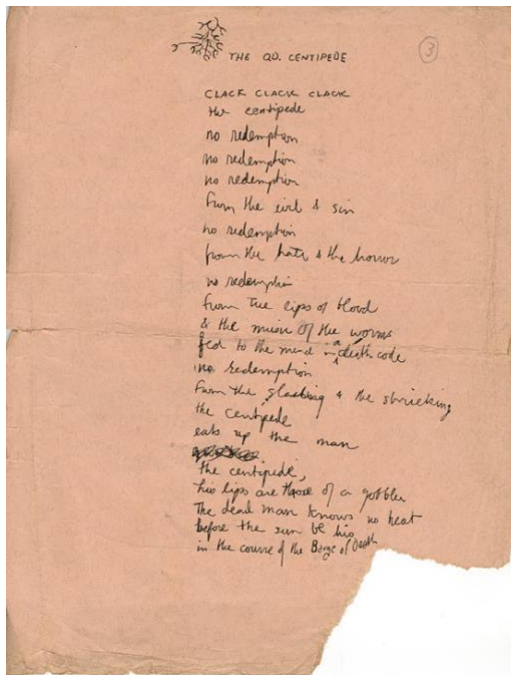 THE OD. CENTIPEDE
3
CLACK CLACK CLACK
the centipede
no redemption
no redemption
no redemption
from the evil & sin
no redemption
from the hate & the horror
no redemption
from the lips of blood
& the music of the worms
fed to the mind in a death code
no redemption
from the & the shrieking
the centipede
eats up the man
the centipede,
his lips are those of a gobbler
The dead man knows no heat
before the sun be his
in the course of the Barge of Death